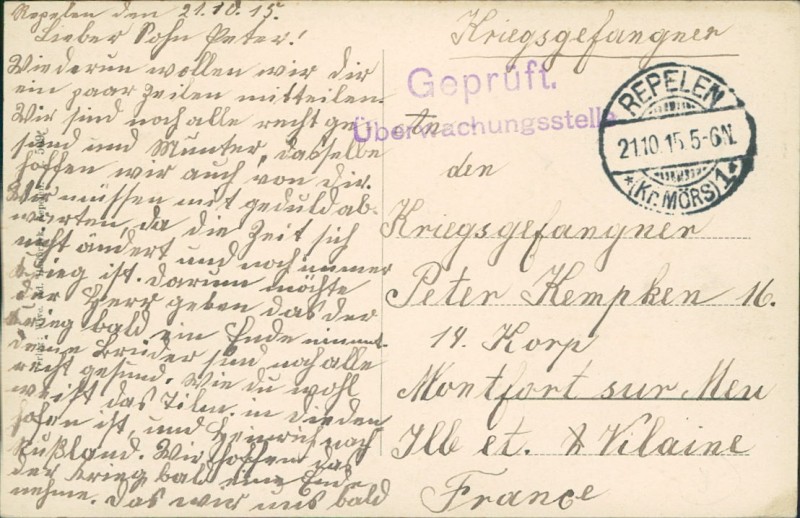 Repelen den 21.10.15.
Lieber Sohn Peter!
Wiederum wollen wir dir
ein paar Zeilen mitteilen.
Wir sind noch alle recht ge-
sund und Munter, dasselbe
hoffen wir auch von dir.
Wir müssen mit geduld ab-
warten, da die Zeit sich
nicht ändert und noch immer
Krieg ist. Darum möchte
der Herr geben das der
Krieg bald ein Ende nimmt.
deine Brüder sind noch alle
recht gesund. Wie du wohl
weißt das Tilm. in
ist, und Heinrich nach
Rußland. Wir hoffen das
der Krieg bald eine Ende
nehme. Das wir uns bald
Kriegsgefangner
Geprüft.
Überwachungsstelle
REPELEN
21.10.15.5-6N.
*(Kr. MÖRS)1*
An
den
Kriegsgefangner
Peter Kempken 16.
14. Korp
Montfort sur Meu
Ilb et. Vilaine
France